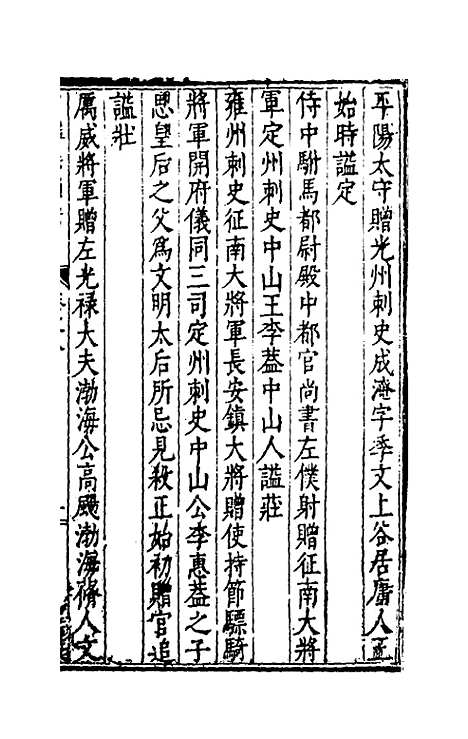 平陽太守贈光州刺史成淹字季文上谷居庸人正
始時謚定
侍中駙馬都尉殿中都官尚書左僕射贈征南大將
軍定州刺史中山王李蓋中山人謚莊
雍州刺史征南大將軍長安鎮大將贈使持節驃騎
將軍開府儀同三司定州刺史中山公李惠蓋之子
思皇后之父為文明太后所忌見殺正始初贈官追
謚壯
厲威將軍贈左光祿大夫渤海公高颺渤海脩人文